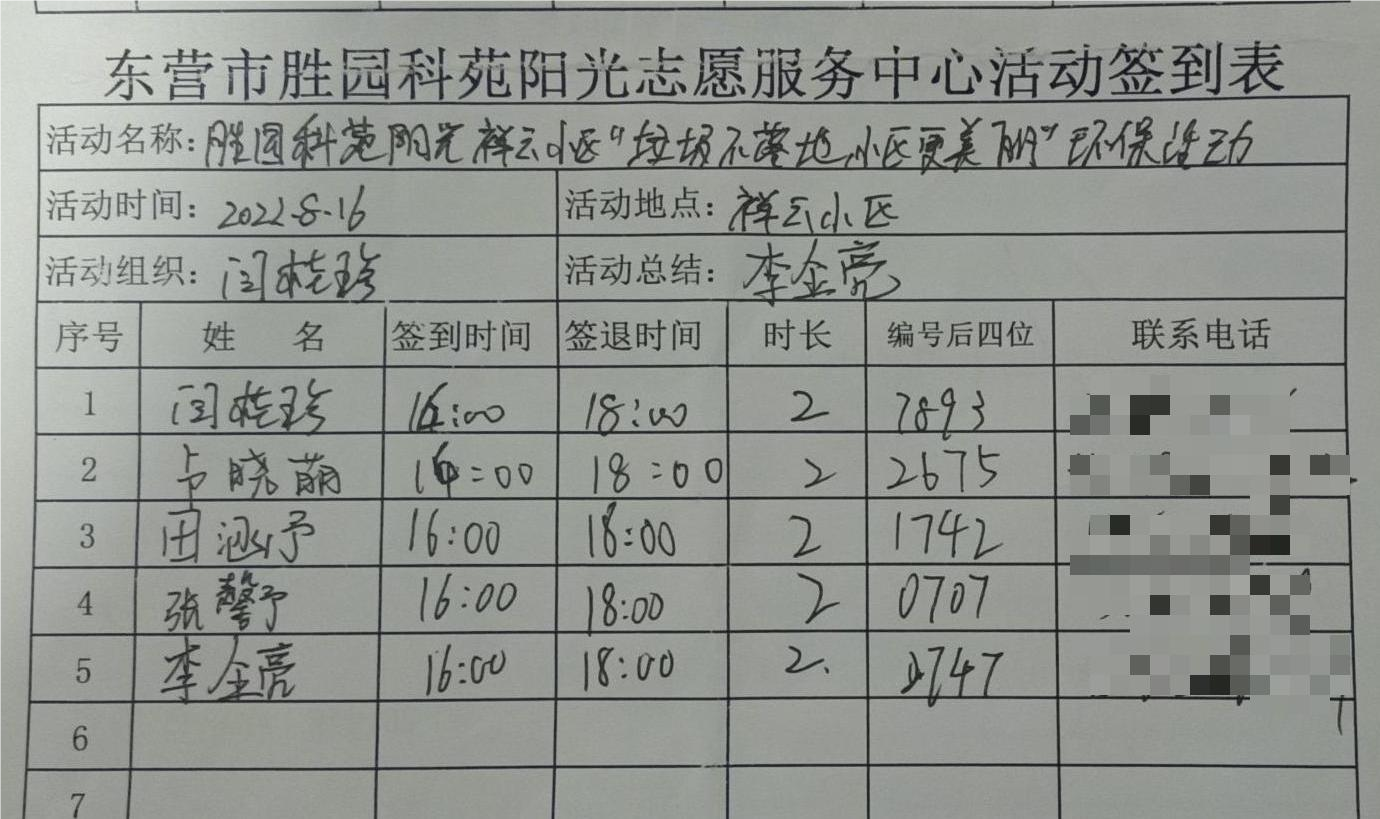 东营市胜园科苑阳光志愿服务中心活动签到表
活动名称：胜园科苑阳光祥云小区“垃圾不落地，小区更美丽”环保活动
活动时间：2022.8.16 活动地点：祥云小区
活动组织：闫桂珍 活动总结：李全亮
序号 姓 名 签到时间 签退时间 时长 编号后四位 联系电话
1 闫桂珍 16:00 18:00 2 7893
2 卢晓萌 16:00 18:00 2 2675
3 田涵予 16:00 18:00 2 1742
4 张馨予 16:00 18:00 2 0707
5 李全亮 16:00 18:00 2.
6
7